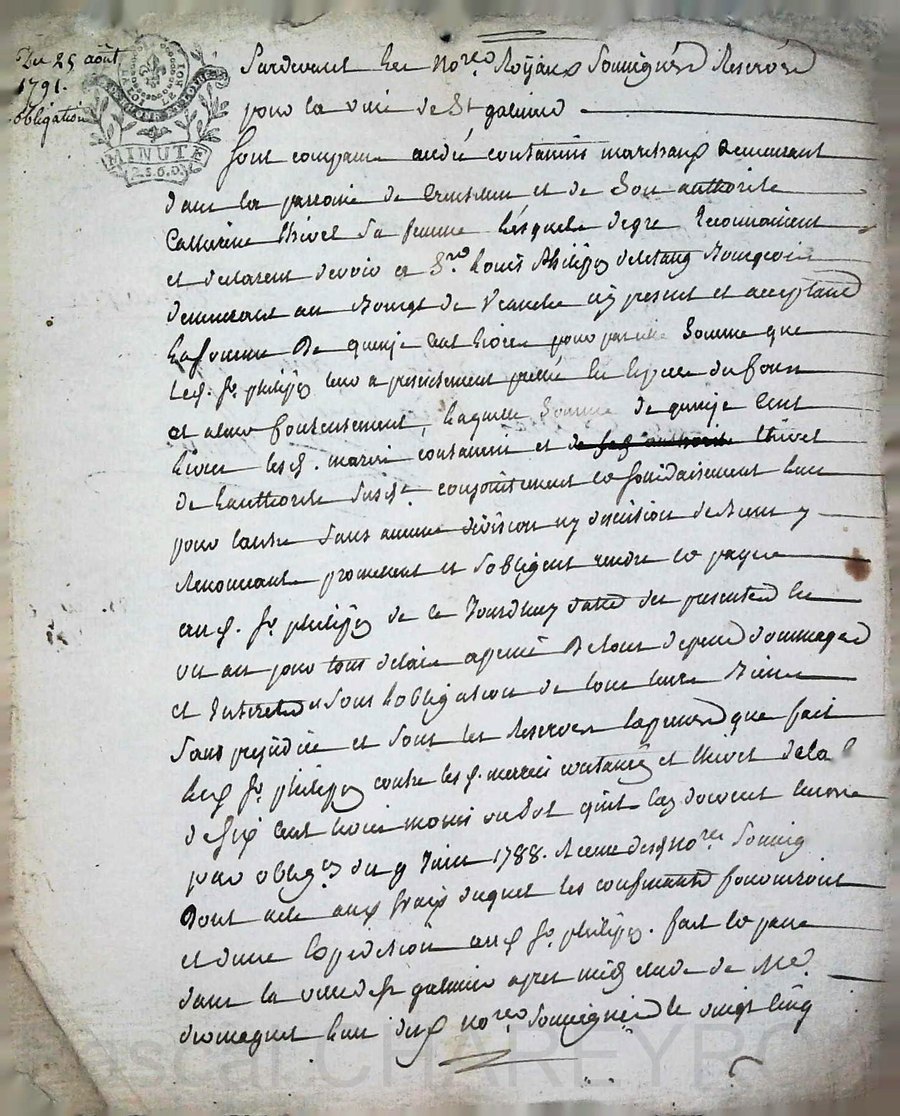 Du 25 août
1791.
obligation
LA LOI ET LE ROI
MINUTE
2. S. 6. D.
Pardevant Les no.res Royaux Soussignés Reservés
pour la ville de St galmier
furent comparu andré coutamin marchand demeurant
dans la parroisse de et de Son authorité
Catherine thivet Sa femme Lesquels de gré Reconnoissent
et declarent devoir a Sr. Louis Philippe deletang Bourgeois
demeurant au Bourg de Veauche icy present et acceptant
La somme De quinze cent Livres pour pareille Somme que
Led. Sr. philippe leur a presentement prétté En Especes du Cours
et a leur Contentement, Laquelle Somme de quinze Cent
livres lesd. mariés coutamin et thivet
de Lauthorité Susd. conjointement et solidairement l'un
pour l'autre Sans aucune division ny discution de Biens y
Renonceant promettent et S'obligent rendre et payer
aud. Sr. philippe de ce Jourdhuy datte des presentes En
un an pour tout delais apeine De tous depens dommages
et Interets et Sous L'obligation de tous leurs Biens
Sans prejudice et Sous les Reserves Expresses que fait
led. Sr. philippe contre lesd. mariés coutamin et thivet de la Se
de Six cent Livres moins un Sol qu'ils luy doivent Encore
par oblig.on du 9 Juin 1788. Receue desd no.res Soussig
Dont acte aux frais duquel les confessants fourniront
et d'une Expedition aud Sr. philippe. fait et passé
dans la ville de St galmier apres midy Etude de Me.
dromagnet l'un desd no.res Soussignés le vingt cinq
Pascal CHAREYRON